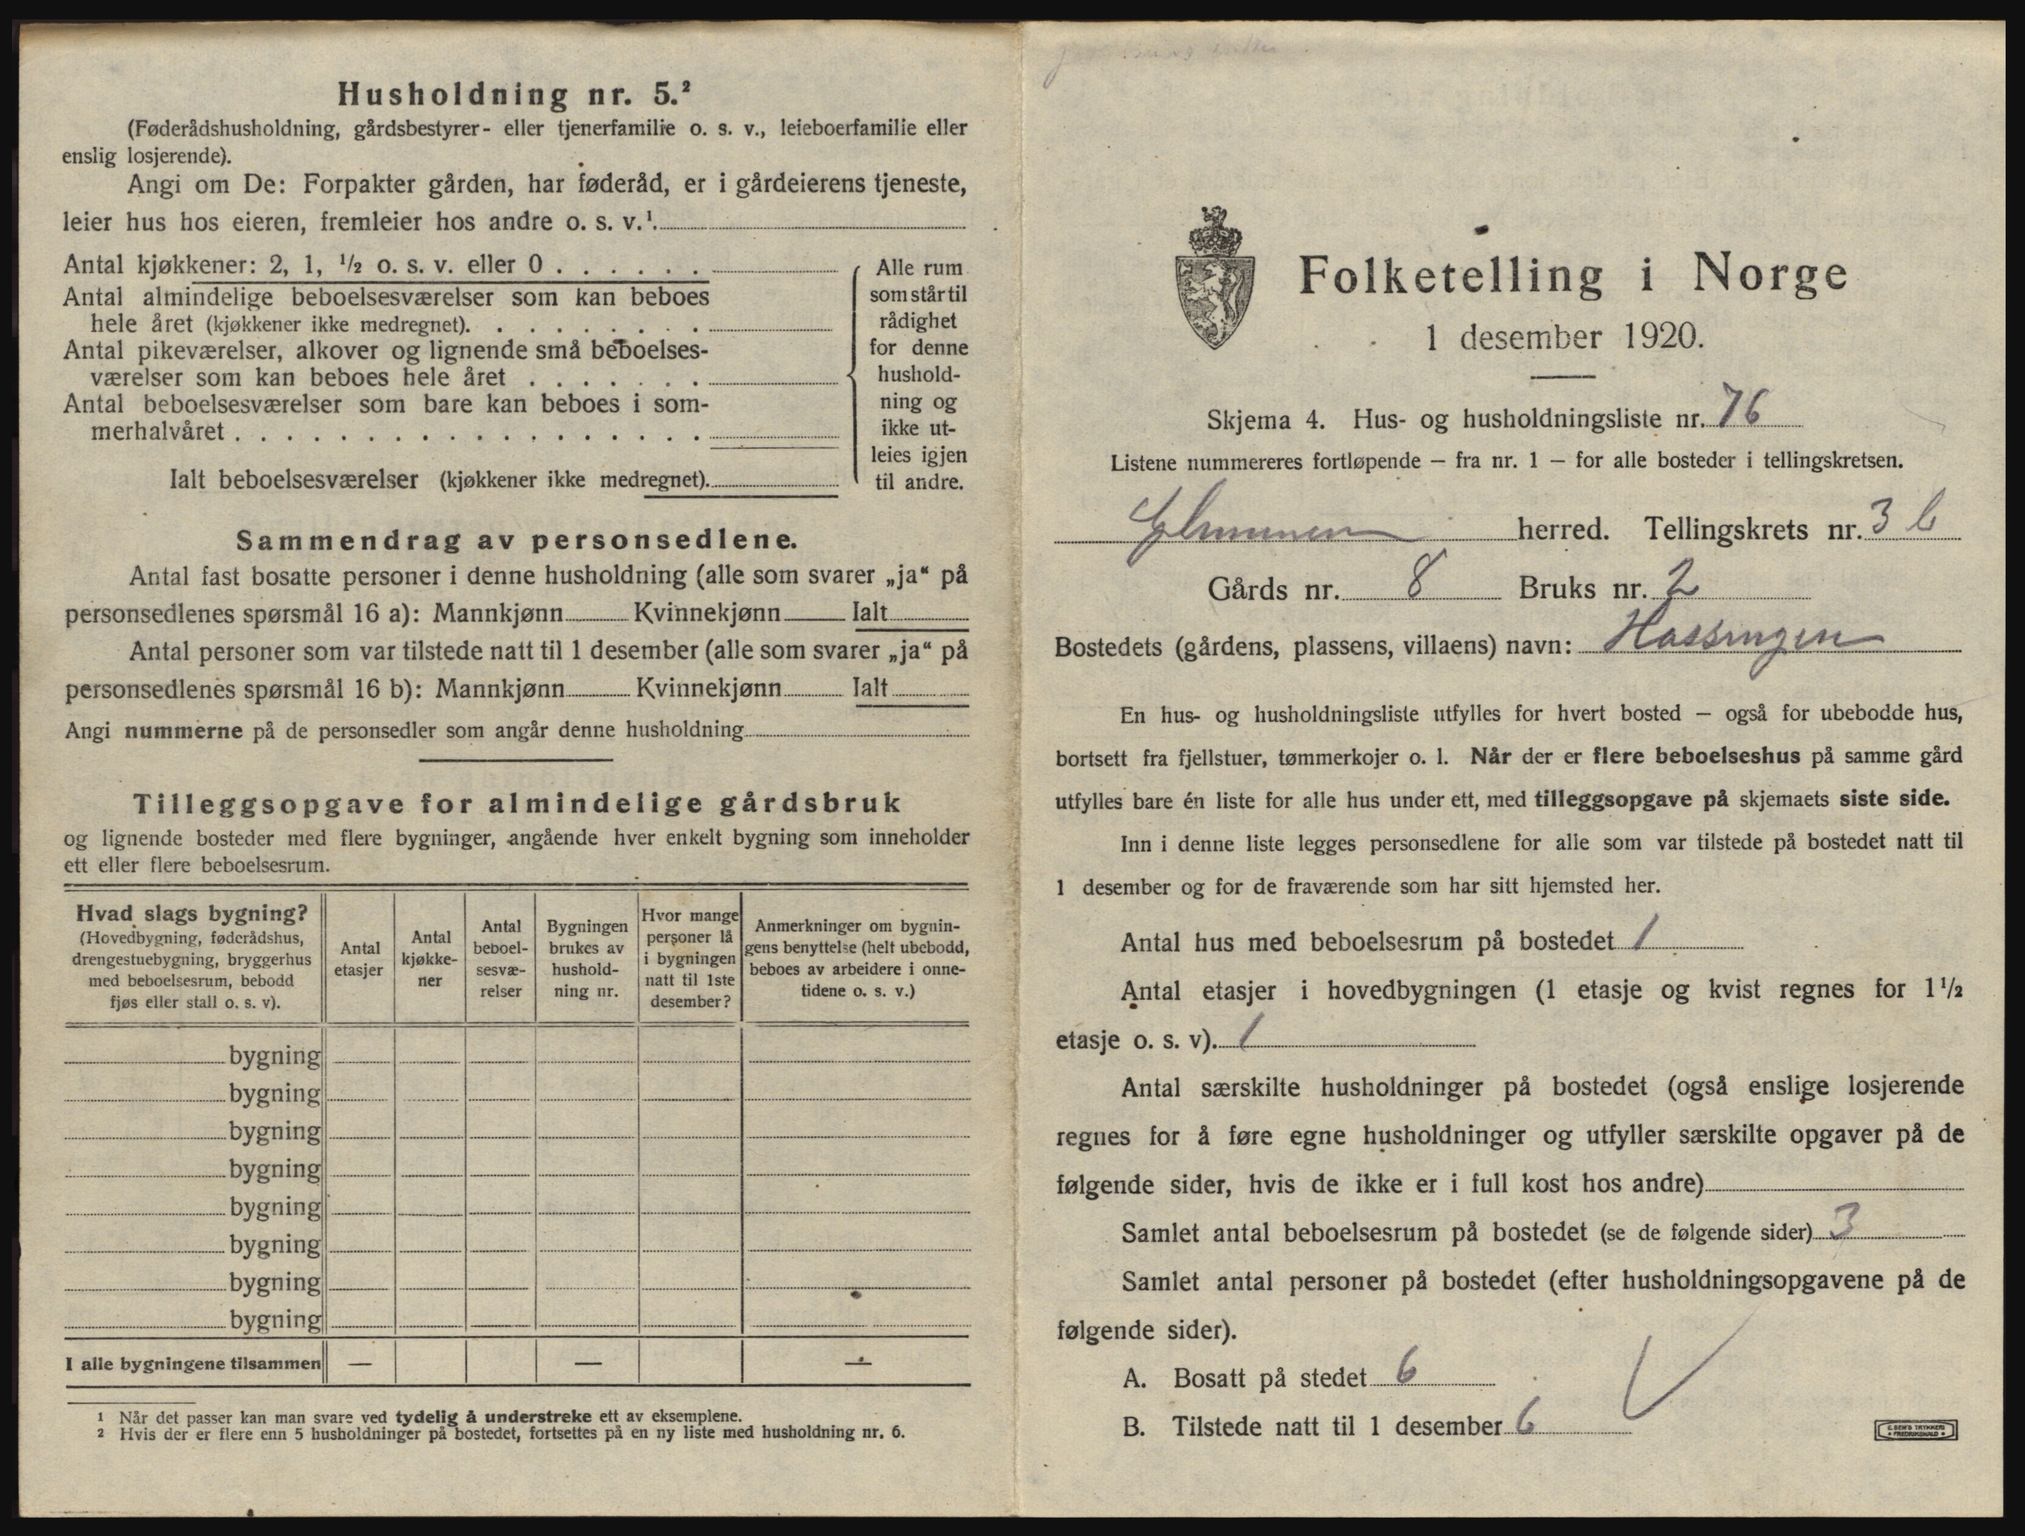 Husholdning nr. 5.²
(Føderådshusholdning, gårdsbestyrer- eller tjenerfamilie o. s. v., leieboerfamilie eller
enslig losjerende).
Angi om De: Forpakter gården, har føderåd, er i gårdeierens tjeneste,
leier hus hos eieren, fremleier hos andre o. s. v.¹.
Antal kjøkkener: 2, 1, ½ o. s. v. eller 0 . . . . . .
Antal almindelige beboelsesværelser som kan beboes
hele året (kjøkkener ikke medregnet). . . . . . . . .
Antal pikeværelser, alkover og lignende små beboelses-
værelser som kan beboes hele året . . . . . . .
Antal beboelsesværelser som bare kan beboes i som-
merhalvåret . . . . . . . . . . . . . . . . . .
Ialt beboelsesværelser (kjøkkener ikke medregnet).
Alle rum
som står til
rådighet
for denne
hushold-
ning og
ikke ut-
leies igjen
til andre.
Sammendrag av personsedlene.
Antal fast bosatte personer i denne husholdning (alle som svarer „ja“ på
personsedlenes spørsmål 16 a): Mannkjønn Kvinnekjønn Ialt
Antal personer som var tilstede natt til 1 desember (alle som svarer „ja“ på
personsedlenes spørsmål 16 b): Mannkjønn Kvinnekjønn Ialt
Angi nummerne på de personsedler som angår denne husholdning
Tilleggsopgave for almindelige gårdsbruk
og lignende bosteder med flere bygninger, angående hver enkelt bygning som inneholder
ett eller flere beboelsesrum.
Hvad slags bygning?
(Hovedbygning, føderådshus,
drengestuebygning, bryggerhus
med beboelsesrum, bebodd
fjøs eller stall o. s. v).
Antal
etasjer
Antal
kjøkke-
ner
Antal
beboel-
sesvæ-
relser
Bygningen
brukes av
hushold-
ning nr.
Hvor mange
personer lå
i bygningen
natt til 1ste
desember?
Anmerkninger om bygnin-
gens benyttelse (helt ubebodd,
beboes av arbeidere i onne-
tidene o. s. v.)
bygning
bygning
bygning
bygning
bygning
bygning
bygning
bygning
I alle bygningene tilsammen — — —
¹ Når det passer kan man svare ved tydelig å understreke ett av eksemplene.
² Hvis der er flere enn 5 husholdninger på bostedet, fortsettes på en ny liste med husholdning nr. 6.
Folketelling i Norge
1 desember 1920.
Skjema 4. Hus- og husholdningsliste nr. 76
Listene nummereres fortløpende — fra nr. 1 — for alle bosteder i tellingskretsen.
Glemmen herred. Tellingskrets nr. 3 b
Gårds nr. 8 Bruks nr. 2
Bostedets (gårdens, plassens, villaens) navn: Hassingen
En hus- og husholdningsliste utfylles for hvert bosted — også for ubebodde hus,
bortsett fra fjellstuer, tømmerkojer o. l. Når der er flere beboelseshus på samme gård
utfylles bare én liste for alle hus under ett, med tilleggsopgave på skjemaets siste side.
Inn i denne liste legges personsedlene for alle som var tilstede på bostedet natt til
1 desember og for de fraværende som har sitt hjemsted her.
Antal hus med beboelsesrum på bostedet 1
Antal etasjer i hovedbygningen (1 etasje og kvist regnes for 1½
etasje o. s. v). 1
Antal særskilte husholdninger på bostedet (også enslige losjerende
regnes for å føre egne husholdninger og utfyller særskilte opgaver på de
følgende sider, hvis de ikke er i full kost hos andre)
Samlet antal beboelsesrum på bostedet (se de følgende sider) 3
Samlet antal personer på bostedet (efter husholdningsopgavene på de
følgende sider).
A. Bosatt på stedet 6
B. Tilstede natt til 1 desember 6